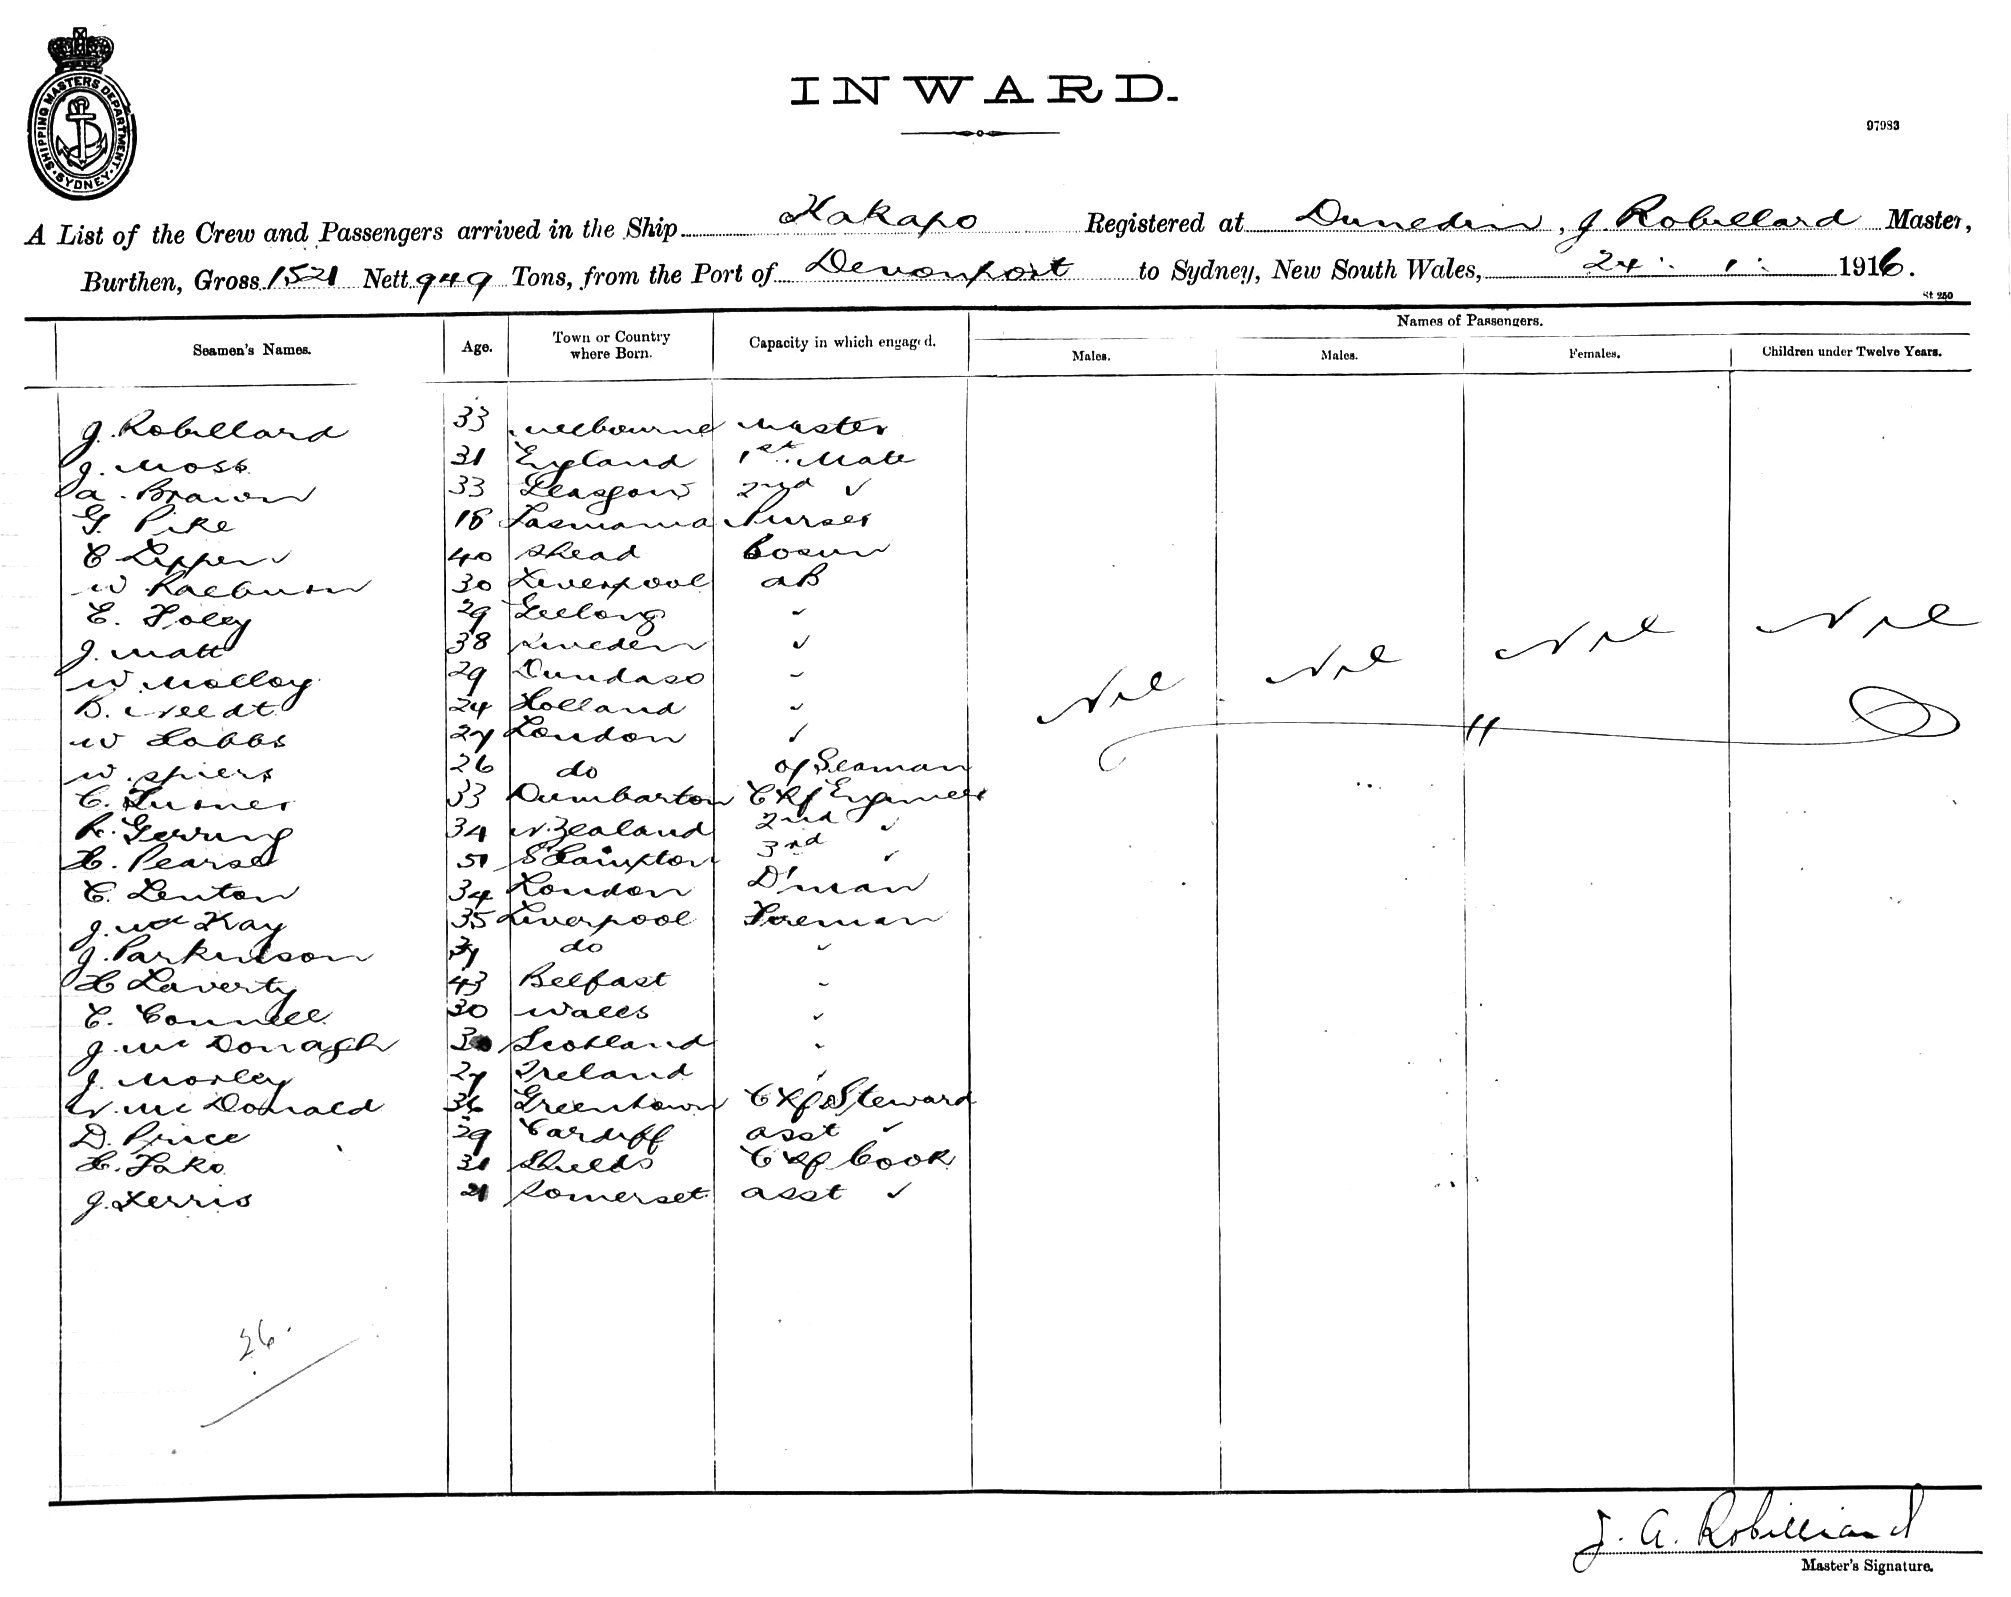 SHIPPING MASTERS DEPARTMENT SYDNEY
INWARD.
97983
A List of the Crew and Passengers arrived in the Ship Kakapo Registered at Dunedin, J. Robillard Master,
Burthen, Gross 1521 Nett 949 Tons, from the Port of Devonport to Sydney, New South Wales, 24 . 1 : 1916.
St 250
Seamen's Names. Age. Town or Country where Born. Capacity in which engaged. Names of Passengers.
Males. Males. Females. Children under Twelve Years.
J. Robillard 33 Melbourne Master
J. Moss 31 England 1st Mate
A. Brown 33 Glasgow 2nd ✓
G. Pike 18 Tasmania Purser
C 40 Shead Bosun
W Raeburn 30 Liverpool AB
E. Foley 29 Geelong "
J. Matt 38 Sweden ✓
W. Molloy 29 Dundas "
B. 24 Holland "
W Hobbs 27 London ✓
W. Spiers 26 do Seaman
C. Turner 33 Dumbarton Chf Engineer
R. Gerring 34 N. Zealand 2nd ✓
H. Pearse 51 S'Hampton 3rd ✓
C. Lenton 34 London D'man
J. McKay 35 Liverpool Fireman
J. Parkinson 37 do "
H Laverty 43 Belfast "
C. Connell 30 Wales "
J. McDonagh Scotland "
J. Morley 27 Ireland "
N. McDonald 36 Chf Steward
D. Price 29 Cardiff Asst ✓
H. 31 Shields Chf Cook
J. Ferris 21 Somerset Asst ✓
Nil Nil Nil Nil
26.
J. A. Robilliard
Master's Signature.